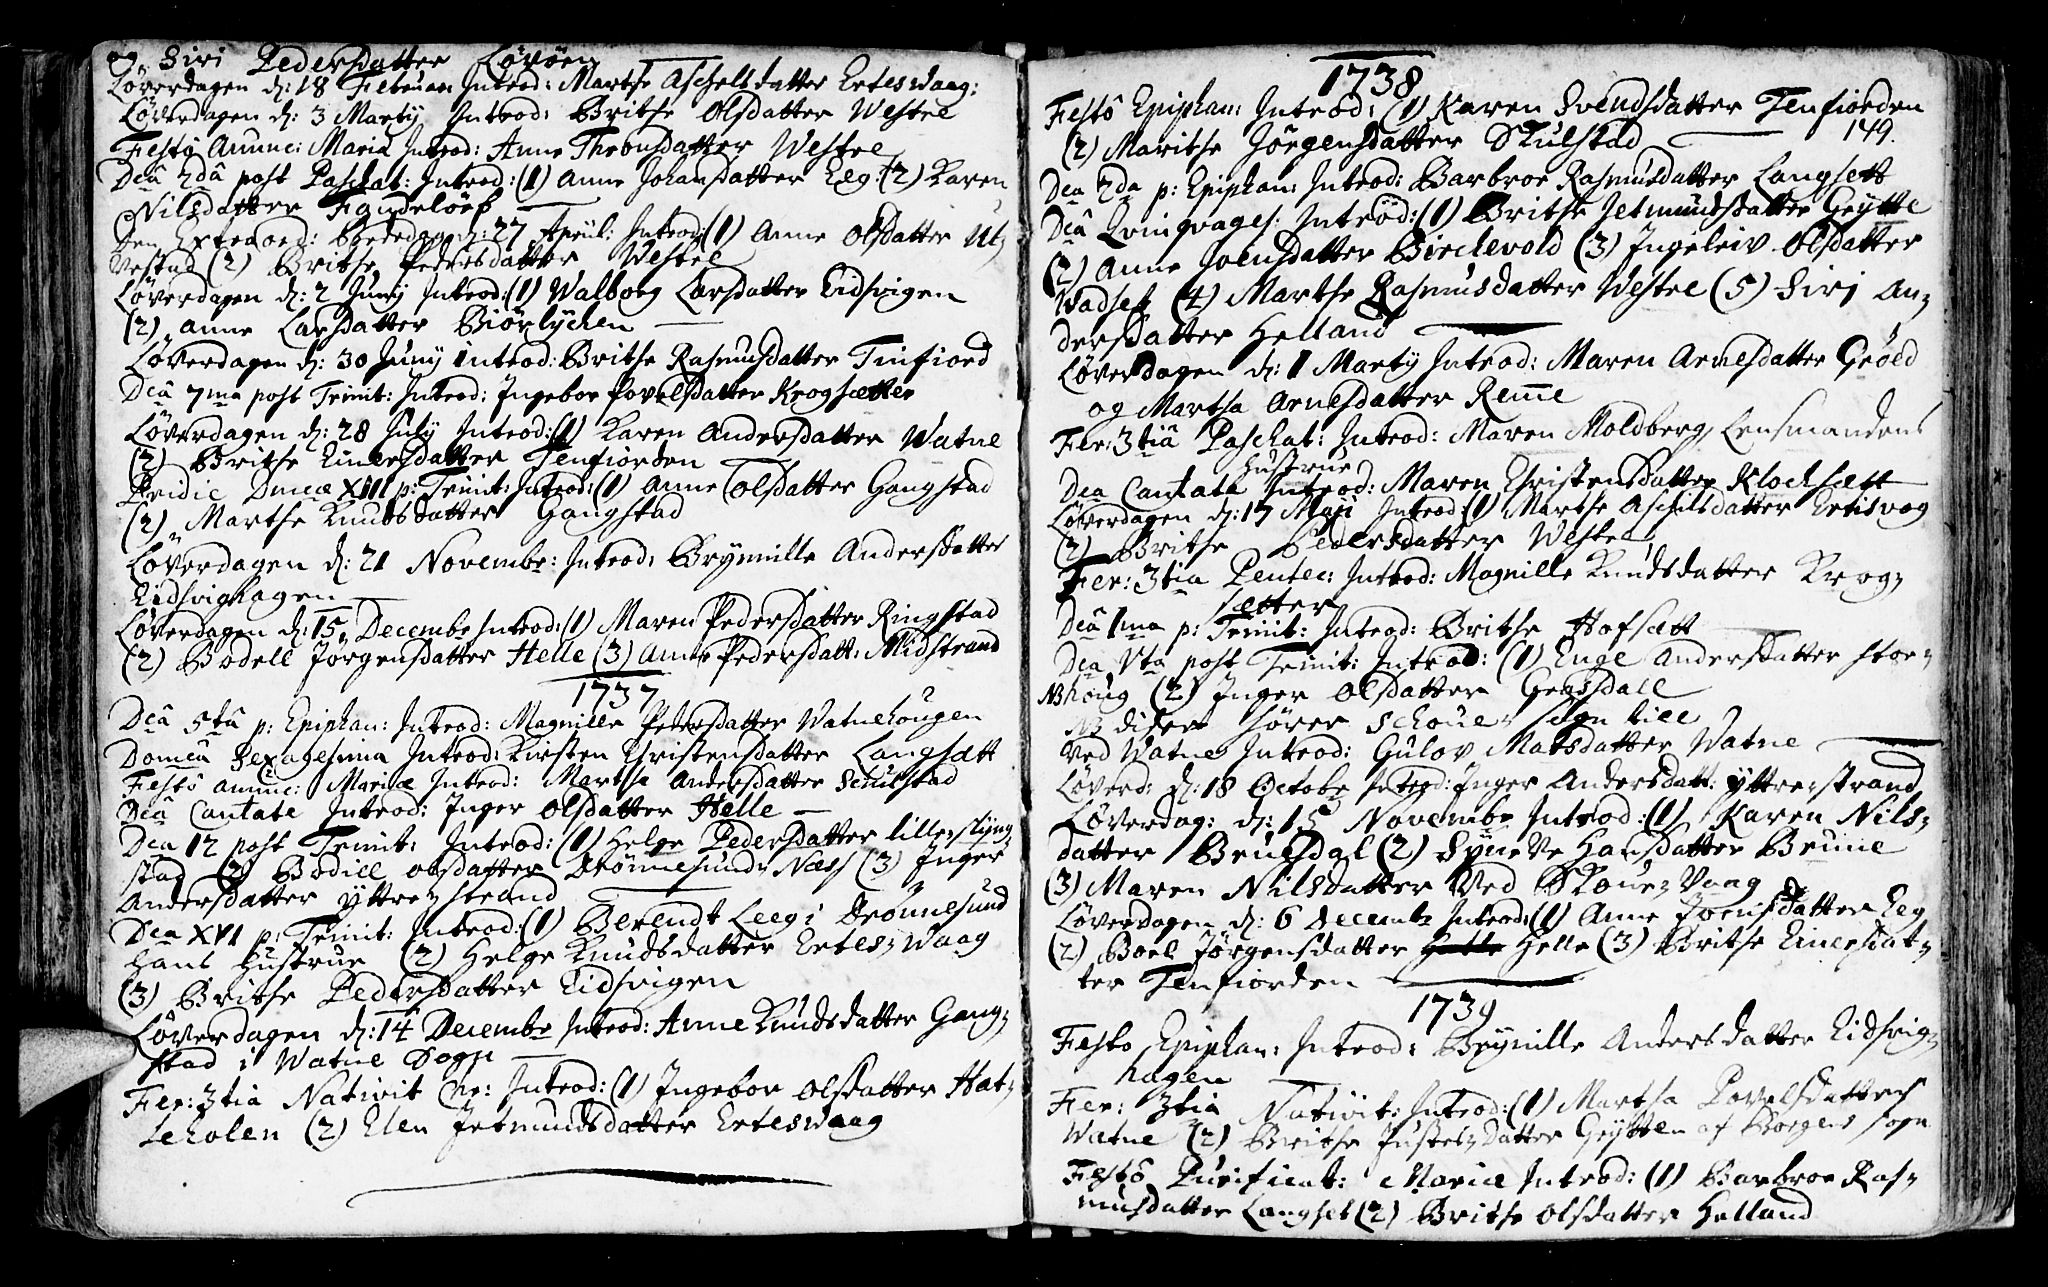 2, Siri Pedersdatter Lövöen
Löverdagen d: 18 Februar: Introd: Marthe Aschelsdatter Erteswaag:
Löverdagen d: 3 Martij Introd: Brithe Olsdatter Westre
Festo Annunc: Mariæ Introd: Anne Thronsdatter Westre
Dcâ 2dâ post Paschat: Introd: (1) Anne Johansdatter Eeg: (2) Karen
Nilsdatter
Den Extraord: Bededag d: 27 April: Introd: (1) Anne Olsdatter Ut,
vestad (2) Brithe Pedersdatter Westre
Löverdagen d: 2 Junij Introd: (1) Walborg Larsdatter Eidsvigen
(2) Anne Larsdatter Biörlychen
Löverdagen d: 30 Junij Introd: Brithe Rasmusdatter Tinfiord
Dcâ 7ma post Trinit: Introd: Ingebor Povelsdatter Krogsætter
Löverdagen d: 28 Julij Introd: (1) Karen Andersdatter Watne
(2) Brithe Einersdatter Tenfiorden
Pridie Dnicæ XIII p: Trinit: Introd: (1) Anne Olsdatter Gangstad
(2) Marthe Knudsdatter Gangstad
Löverdagen d: 21 Novembr: Introd: Brynnille Andersdatter
Eidsvighagen
Löverdagen d: 15, Decembr Introd: (1) Maren Pedersdatter Ringstad
(2) Bodell Jørgensdatter Helle (3) Anne Pedersdatt: Midstrand
1737
Dcâ 5tâ p: Epiphan: Introd: Magnille Pedersdatter Watnehougen
Domcâ Sexagesima Introd: Kirsten Christensdatter Langsætt
Festo Annunc: Mariæ Introd: Martha Andersdatter Schulstad
Dcâ Cantate Introd: Inger Olsdatter Helle
Dca 12 post Trinit: Introd: (1) Helge Pedersdatter lille, slyng,
stad (2) Bodill Olsdatter Drönnesund, Næss (3) Inger
Andersdatter yttre, strand
Dca XVI p: Trinit: Introd: (1) Berendt Leegi Drönnesund
Hans Hustrue (2) Helge Knudsdatter Ertes, Waag
(3) Brithe Pedersdatter Eidsvigen
Löverdagen d: 14 Decembr Introd: Anne Knudsdatter Gang,
stad i Watne Sogn
Fer: 3tia Nativit Chr: Introd: (1) Ingebor Olsdatter Hat,
leholen (2) Elen Jetmundsdatter Erteswaag
1738
149.
Festô Epiphan: Introd: (1) Karen Svendsdatter Tenfiorden
(2) Marithe Jörgensdatter Skulstad
Dca 2da p: Epiphan: Introd: Barbroe Rasmusdatter Langsett
Dcâ Qvinqvages: Introd: (1) Brithe Jetmundsdatter Grytte
(2) Anne Joensdatter Birchevold (3) Ingeleiv Olsdatter
Wadset (4) Marthe Rasmusdatter Westre (5) Siri An,
dersdatter Helland
Löverdagen d: 1 Martij Introd: Maren Arnesdatter Gröed
og Martha Arnesdatter Remme
Fer: 3tiâ Paschat: Introd: Maren Moldberg, Lensmandens
Hustrue
Dca Cantate Introd: Maren Christensdatter Klochsætt
Löverdagen d: 17 Maji Introd: (1) Marthe Aschilsdatter Ertisvog
(2) Brithe Pedersdatter Westre
Fer: 3tia Pentec: Introd: Magnille Knudsdatter Krog,
sætter
Dcâ 1ma p: Trinit: Introd: Brithe Hofsætt
Dca Vta post Trinit: Introd: (1) Enge Andersdatter stor,
NB houg (2) Inger Olsdatter Gregsdall
NB disse hörer Schoue, sogn till
Ved Watne Introd: Gulov Matsdatter Watne
Löverd: d: 18 Octobr Introd: Inger Andersdatt: yttre, strand
Löverdag: d: 15 Novembr Introd: (1) Karen Nils,
datter Bruesdal (2) Syneve Hansdatter Brune
(3) Maren Nilsdatter Ved Skoue, Vaag
Löverdagen d: 6 Decembr Introd: (1) Anne Joensdatter Eeg
(2) Boel Jørgensdatter Helle (3) Brithe Einersdat,
ter Tenfiorden
1739
Festo Epiphan: Introd: Brynille Andersdatter Eidsvig,
hagen
Fer: 3tia Nativit: Introd: (1) Martha Povelsdatter
Watne (2) Brithe Justes, datter Grytten af Borgens sogn
Festô Purificat: Mariæ Introd: (1) Barbroe Ras,
musdatter Langset (2) Brithe Olsdatter Helland